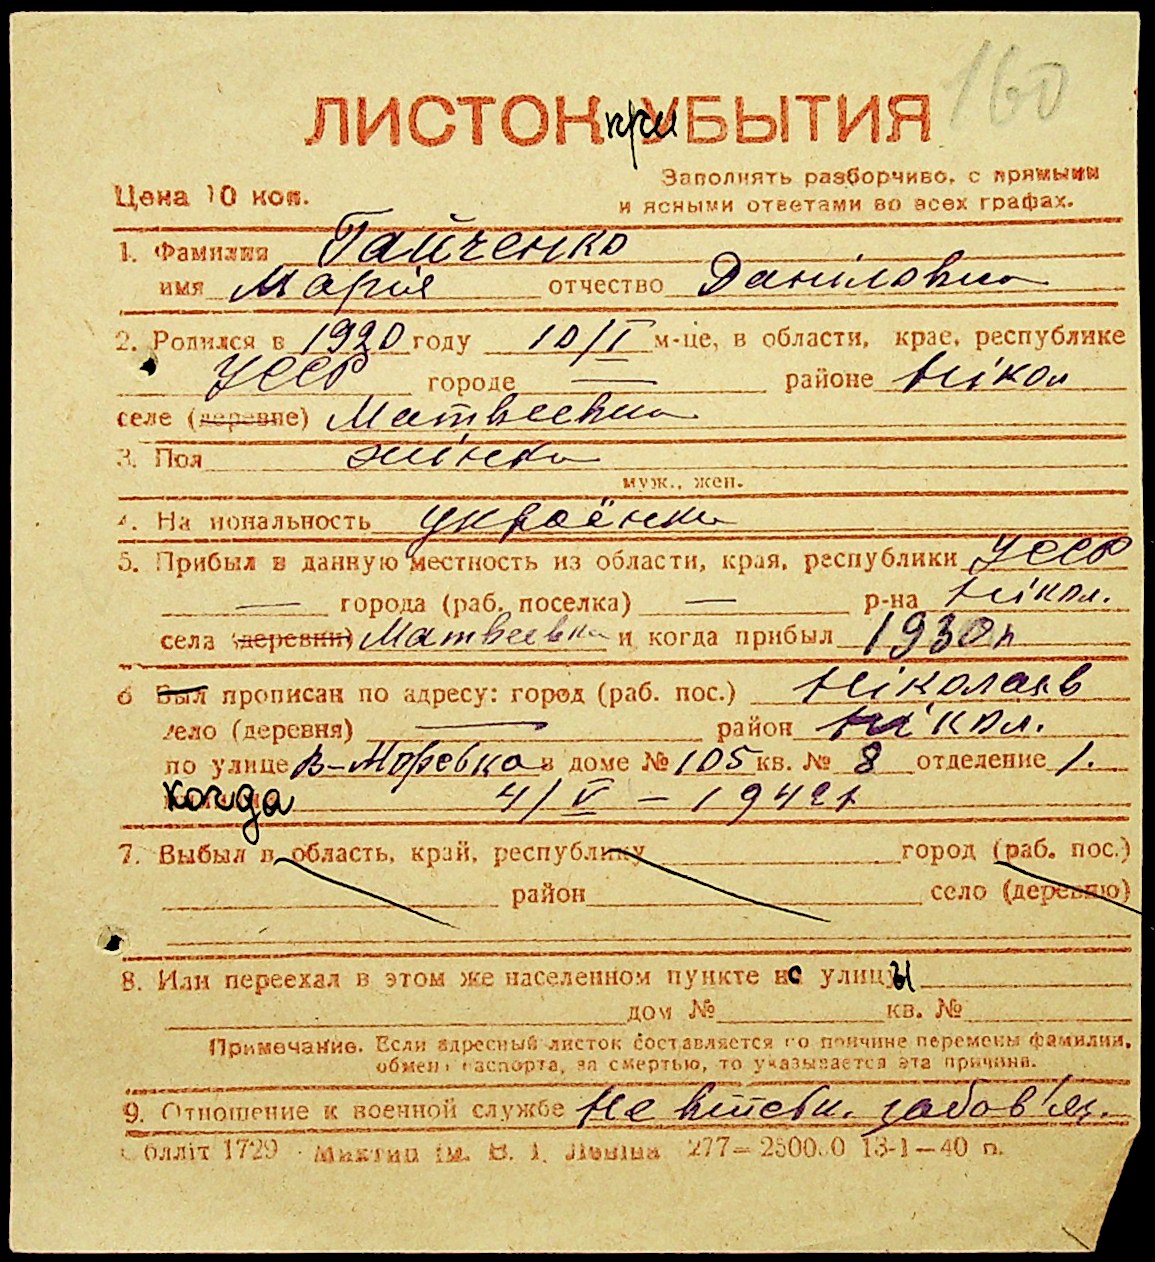 160
ЛИСТОК прибЫТИЯ
Цена 10 коп.
Заполнять разборчиво, с прямыми
и ясными ответами во всех графах.
1. Фамилия Гайченко
имя Марія отчество Даніловна
2. Родился в 1920 году 10/I м-це, в области, крае, республике
УССР городе — районе Нікол
селе (деревне) Матвеевка
3. Пол жінка
муж., жен.
4. Национальность украёнка
5. Прибыл в данную местность из области, края, республики УССР
— города (раб. поселка) — р-на Нікол.
села (деревни) Матвеевка и когда прибыл 1930 р
6 Был прописан по адресу: город (раб. пос.) Ніколаєв
село (деревня) — район Нікол.
по улице в доме № 105 кв. № 8 отделение 1.
когда 4/V – 1942 г
7. Выбыл в область, край, республику город (раб. пос.)
район село (деревню)
8. Или переехал в этом же населенном пункте с улицы
дом № кв. №
Примечание. Если адресный листок составляется по причине перемены фамилии,
обмена паспорта, за смертью, то указывается эта причина.
9. Отношение к военной службе Не війсьн. забов'яз.
Облліт 1729 Миктип ім. В. І. Леніна 277—250000 13-1—40 п.